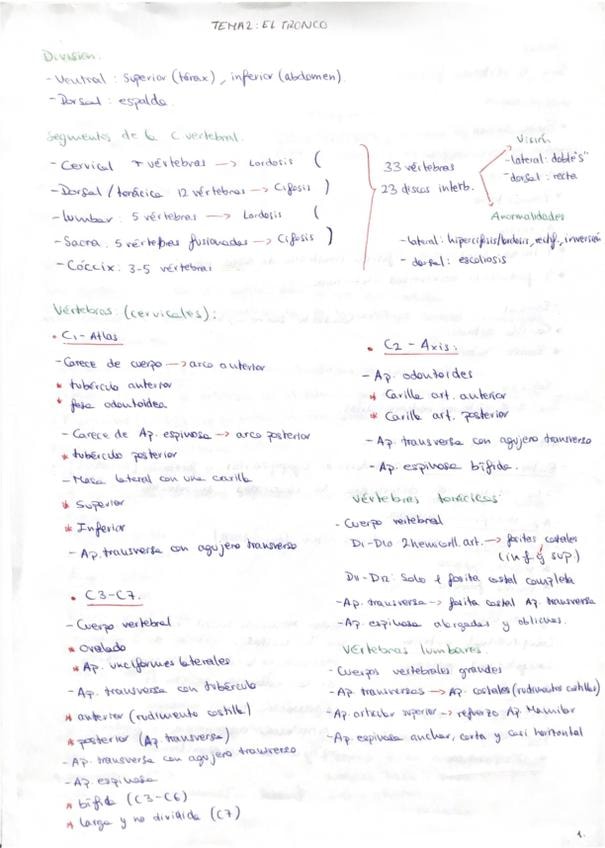 TEMA 2: EL TRONCO
División.
- Ventral: Superior (tórax), inferior (abdomen)
- Dorsal: espalda.
Segmentos de la C vertebral.
- Cervical 7 vértebras → Lordosis (
- Dorsal / torácica 12 vértebras → Cifosis )
- Lumbar: 5 vértebras → Lordosis (
- Sacra: 5 vértebras fusionadas → Cifosis )
- Cóccix: 3-5 vértebras
33 vértebras
23 discos interb.
Visión
- lateral: doble "s"
- dorsal: recta
Anormalidades
- lateral: hipercifosis/lordosis, rectif., inversión
- dorsal: escoliosis
Vértebras: (cervicales):
• C1 - Atlas
- Carece de cuerpo → arco anterior
* tubérculo anterior
* fosa odontoidea
- Carece de Ap. espinosa → arco posterior
* tubérculo posterior
- Masa lateral con una carilla
* Superior
* Inferior
- Ap. transversa con agujero transverso
• C3-C7.
- Cuerpo vertebral
* Ovalado
* Ap. unciformes laterales
- Ap. transversa con tubérculo
* anterior (rudimento costilla)
* posterior (Ap. transversa)
- Ap. transversa con agujero transverso
- Ap. espinosa
* bífida (C3-C6)
* larga y no dividida (C7)
• C2 - Axis:
- Ap. odontoides
* Carilla art. anterior
* Carilla art. posterior
- Ap. transversa con agujero transverso
- Ap. espinosa bífida.
Vértebras torácicas:
- Cuerpo vertebral
D1-D10 2 hemicarll. art. → fositas costales
(inf. y sup.)
D11-D12: Solo 1 fosita costal completa
- Ap. transversa → fosita costal Ap. transversa
- Ap. espinosa alargadas y oblicuas.
Vértebras lumbares.
- Cuerpos vertebrales grandes
- Ap. transversas → Ap. costales (rudimentos costillas)
- Ap. articular superior → refuerzo Ap. Mamilar
- Ap. espinosa ancha, corta y casi horizontal
1.